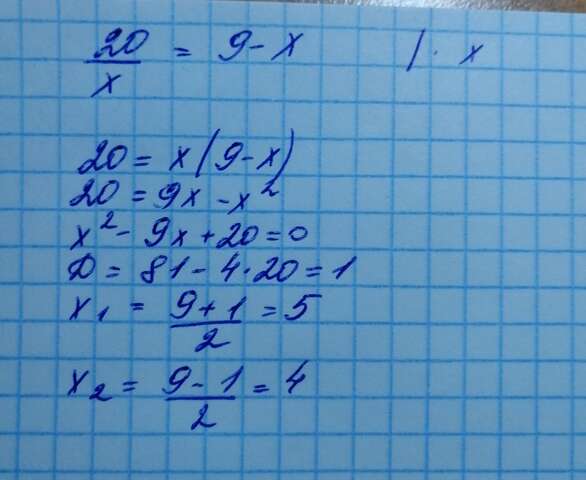 20/x = 9-x |· x
20 = x(9-x)
20 = 9x - x²
x² - 9x + 20 = 0
D = 81 - 4·20 = 1
x₁ = (9+1)/2 = 5
x₂ = (9-1)/2 = 4